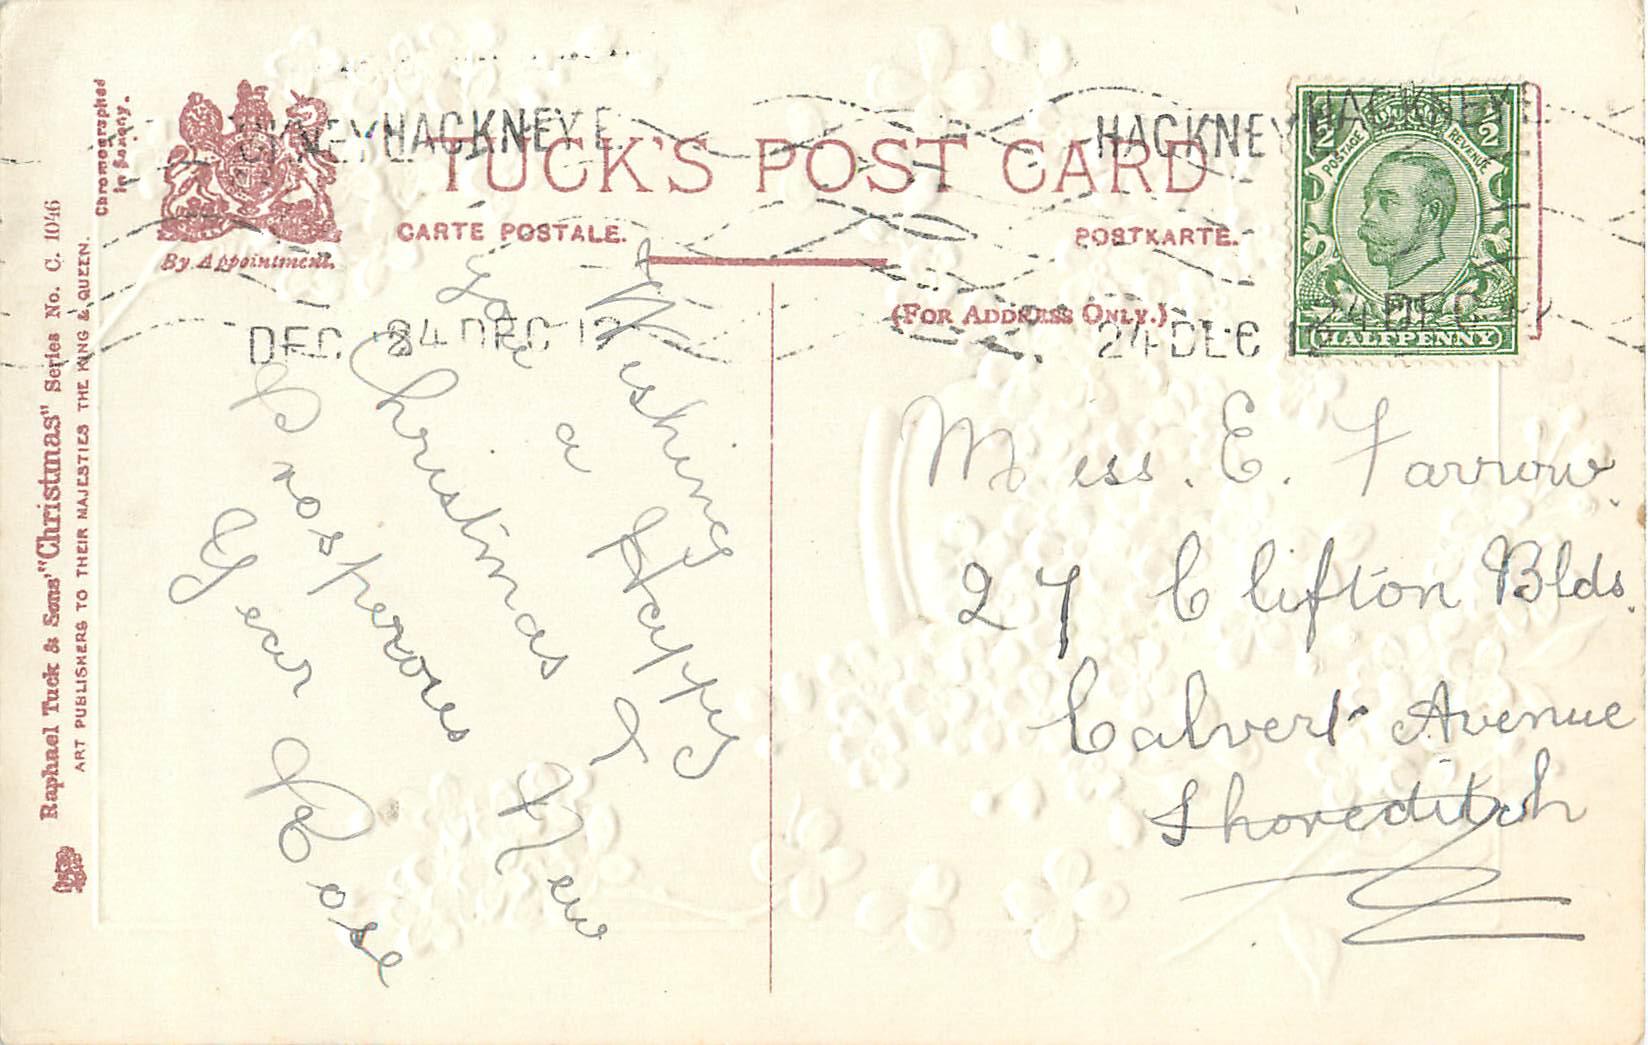 Chromographed
in Saxony.
Raphael Tuck & Sons' "Christmas" Series No. C. 1046
ART PUBLISHERS TO THEIR MAJESTIES THE KING & QUEEN.
By Appointment.
TUCK'S POST CARD
CARTE POSTALE.
POSTKARTE.
(FOR ADDRESS ONLY.)
HACKNEY E.
HACKNEY
HACKNEY E
DEC
24 DEC 12
24 DEC 12
24 DEC
POSTAGE
REVENUE
HALFPENNY
Wishing
you a Happy
Christmas &
Prosperous New
Year Rose
Miss. E. Farrow.
27 Clifton Blds.
Calvert Avenue
Shoreditch